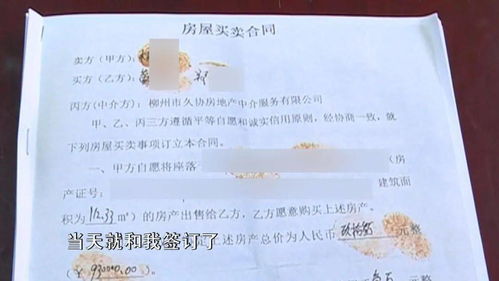 房屋买卖合同
卖方（甲方）：
买方（乙方）： 郑
丙方(中介方)：柳州市久协房地产中介服务有限公司
甲、乙、丙三方遵循平等自愿和诚实信用原则，经协商一致，就
下列房屋买卖事项订立本合同。
一、甲方自愿将座落 （房
产证号： 建筑面
积为112.33m²）的房产出售给乙方，乙方愿意购买上述房产。
当天就和我签订了
上述房产总价为人民币 元整
（¥930000.00）。